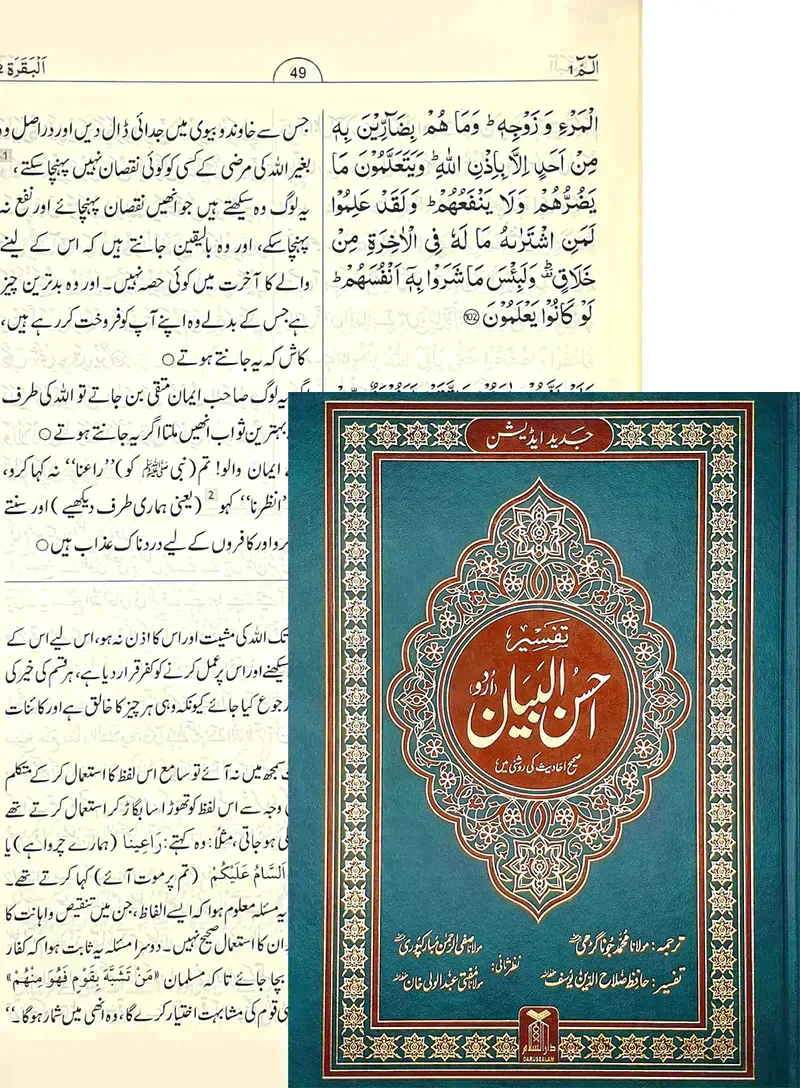 الٓمّٓ 1
49
اَلْبَقَرَة 2
الْمَرْءِ وَ زَوْجِهٖ ؕ وَمَا هُمْ بِضَآرِّيْنَ بِهٖ
مِنْ اَحَدٍ اِلَّا بِاِذْنِ اللّٰهِ ؕ وَيَتَعَلَّمُوْنَ مَا
يَضُرُّهُمْ وَلَا يَنْفَعُهُمْ ؕ وَلَقَدْ عَلِمُوْا
لَمَنِ اشْتَرٰىهُ مَا لَهٗ فِى الْاٰخِرَةِ مِنْ
خَلَاقٍ ؕ۫ وَلَبِئْسَ مَا شَرَوْا بِهٖٓ اَنْفُسَهُمْ ؕ
لَوْ كَانُوْا يَعْلَمُوْنَ 102
جس سے خاوند و بیوی میں جدائی ڈال دیں اور دراصل وہ
بغیر اللہ کی مرضی کے کسی کو کوئی نقصان نہیں پہنچا سکتے، 1
یہ لوگ وہ سیکھتے ہیں جو انھیں نقصان پہنچائے اور نفع نہ
پہنچا سکے، اور وہ بالیقین جانتے ہیں کہ اس کے لینے
والے کا آخرت میں کوئی حصہ نہیں۔ اور وہ بدترین چیز
ہے جس کے بدلے وہ اپنے آپ کو فروخت کر رہے ہیں،
کاش کہ یہ جانتے ہوتے ○
یہ لوگ صاحب ایمان متقی بن جاتے تو اللہ کی طرف
بہترین ثواب انھیں ملتا اگر یہ جانتے ہوتے ○
ایمان والو! تم (نبی ﷺ کو) ’’راعنا‘‘ نہ کہا کرو،
’’انظرنا‘‘ کہو 2 (یعنی ہماری طرف دیکھیے) اور سنتے
رہو اور کافروں کے لیے دردناک عذاب ہیں ○
تک اللہ کی مشیت اور اس کا اذن نہ ہو، اس لیے اس کے
سیکھنے اور اس پر عمل کرنے کو کفر قرار دیا ہے، ہر قسم کی خیر کی
رجوع کیا جائے کیونکہ وہی ہر چیز کا خالق ہے اور کائنات
سمجھ میں نہ آئے تو سامع اس لفظ کا استعمال کر کے متکلم
وجہ سے اس لفظ کو تھوڑا سا بگاڑ کر استعمال کرتے تھے
ہو جاتی، مثلاً: وہ کہتے: رَاعِيْنَا (ہمارے چرواہے) یا
اَلسَّامُ عَلَيْكُمْ (تم پر موت آئے) کہا کرتے تھے۔
یہ مسئلہ معلوم ہوا کہ ایسے الفاظ، جن میں تنقیص و اہانت کا
ان کا استعمال صحیح نہیں۔ دوسرا مسئلہ یہ ثابت ہوا کہ کفار
بچا جائے تاکہ مسلمان «مَنْ تَشَبَّهَ بِقَوْمٍ فَهُوَ مِنْهُمْ»
قوم کی مشابہت اختیار کرے گا، وہ انھی میں شمار ہوگا۔‘‘
جدید ایڈیشن
تفسیر
احسن البیان
(اُردو)
صحیح احادیث کی روشنی میں
ترجمہ: مولانا محمد جوناگڑھی
تفسیر: حافظ صلاح الدین یوسف
نظر ثانی:
مولانا صفی الرحمٰن مبارکپوری
مولانا مفتی عبدالولی خان
دارالسلام
DARUSSALAM